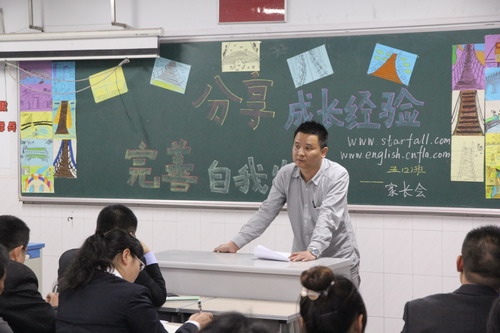 分享 成长经验
www.starfall.com
www.english.cnfla.com
完善 自我
五(2)班
家长会